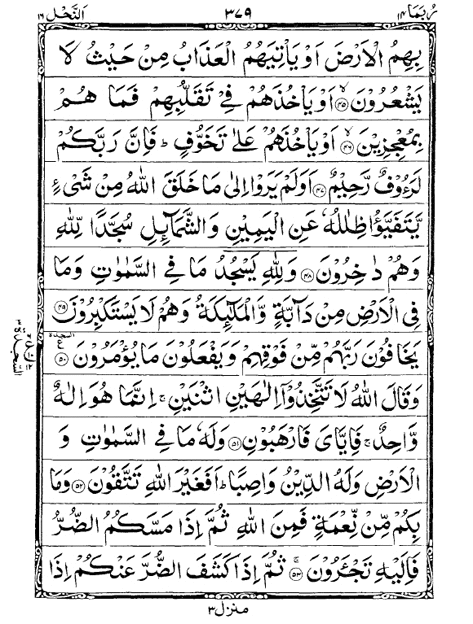 رُبَمَا ١٤ ٣٧٩ اَلنَّحْل ١٦
بِهِمُ الْاَرْضَ اَوْ يَاْتِيَهُمُ الْعَذَابُ مِنْ حَيْثُ لَا
يَشْعُرُوْنَ ۙ‏﴿٤٥﴾ اَوْ يَاْخُذَهُمْ فِيْ تَقَلُّبِهِمْ فَمَا هُمْ
بِمُعْجِزِيْنَ ۙ‏﴿٤٦﴾ اَوْ يَاْخُذَهُمْ عَلٰى تَخَوُّفٍ ؕ فَاِنَّ رَبَّكُمْ
لَرَءُوْفٌ رَّحِيْمٌ ﴿٤٧﴾ اَوَلَمْ يَرَوْا اِلٰى مَا خَلَقَ اللّٰهُ مِنْ شَيْءٍ
يَّتَفَيَّؤُا ظِلٰلُهٗ عَنِ الْيَمِيْنِ وَالشَّمَآئِلِ سُجَّدًا لِّلّٰهِ
وَهُمْ دٰخِرُوْنَ ﴿٤٨﴾ وَلِلّٰهِ يَسْجُدُ مَا فِي السَّمٰوٰتِ وَمَا
فِي الْاَرْضِ مِنْ دَآبَّةٍ وَّالْمَلٰٓئِكَةُ وَهُمْ لَا يَسْتَكْبِرُوْنَ ﴿٤٩﴾
يَخَافُوْنَ رَبَّهُمْ مِّنْ فَوْقِهِمْ وَيَفْعَلُوْنَ مَا يُؤْمَرُوْنَ ﴿٥٠﴾ السجدة ع
وَقَالَ اللّٰهُ لَا تَتَّخِذُوْٓا اِلٰهَيْنِ اثْنَيْنِ ۚ اِنَّمَا هُوَ اِلٰهٌ
وَّاحِدٌ ۚ فَاِيَّايَ فَارْهَبُوْنِ ﴿٥١﴾ وَلَهٗ مَا فِي السَّمٰوٰتِ وَ
الْاَرْضِ وَلَهُ الدِّيْنُ وَاصِبًا ؕ اَفَغَيْرَ اللّٰهِ تَتَّقُوْنَ ﴿٥٢﴾ وَمَا
بِكُمْ مِّنْ نِّعْمَةٍ فَمِنَ اللّٰهِ ثُمَّ اِذَا مَسَّكُمُ الضُّرُّ
فَاِلَيْهِ تَجْـَٔرُوْنَ ۚ‏﴿٥٣﴾ ثُمَّ اِذَا كَشَفَ الضُّرَّ عَنْكُمْ اِذَا
منزل ٣